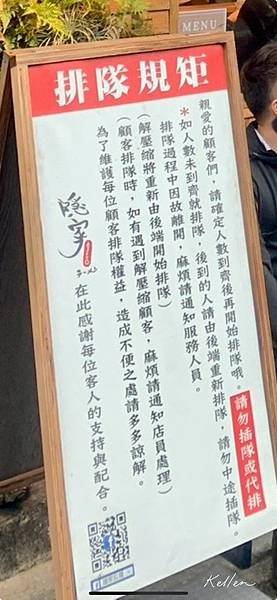 MENU
排隊規矩
親愛的顧客們，請確定人數到齊後再開始排隊哦。請勿插隊或代排
＊如人數未到齊就排隊，後到的人請由後端重新排隊，請勿中途插隊。
排隊過程中因故離開，麻煩請通知服務人員。
(解壓縮將重新由後端開始排隊)
(顧客排隊時，如有遇到解壓縮顧客，麻煩請通知店員處理)
為了維護每位顧客排隊權益，造成不便之處請多多諒解。
在此感謝每位客人的支持與配合。
隱家
Kellen